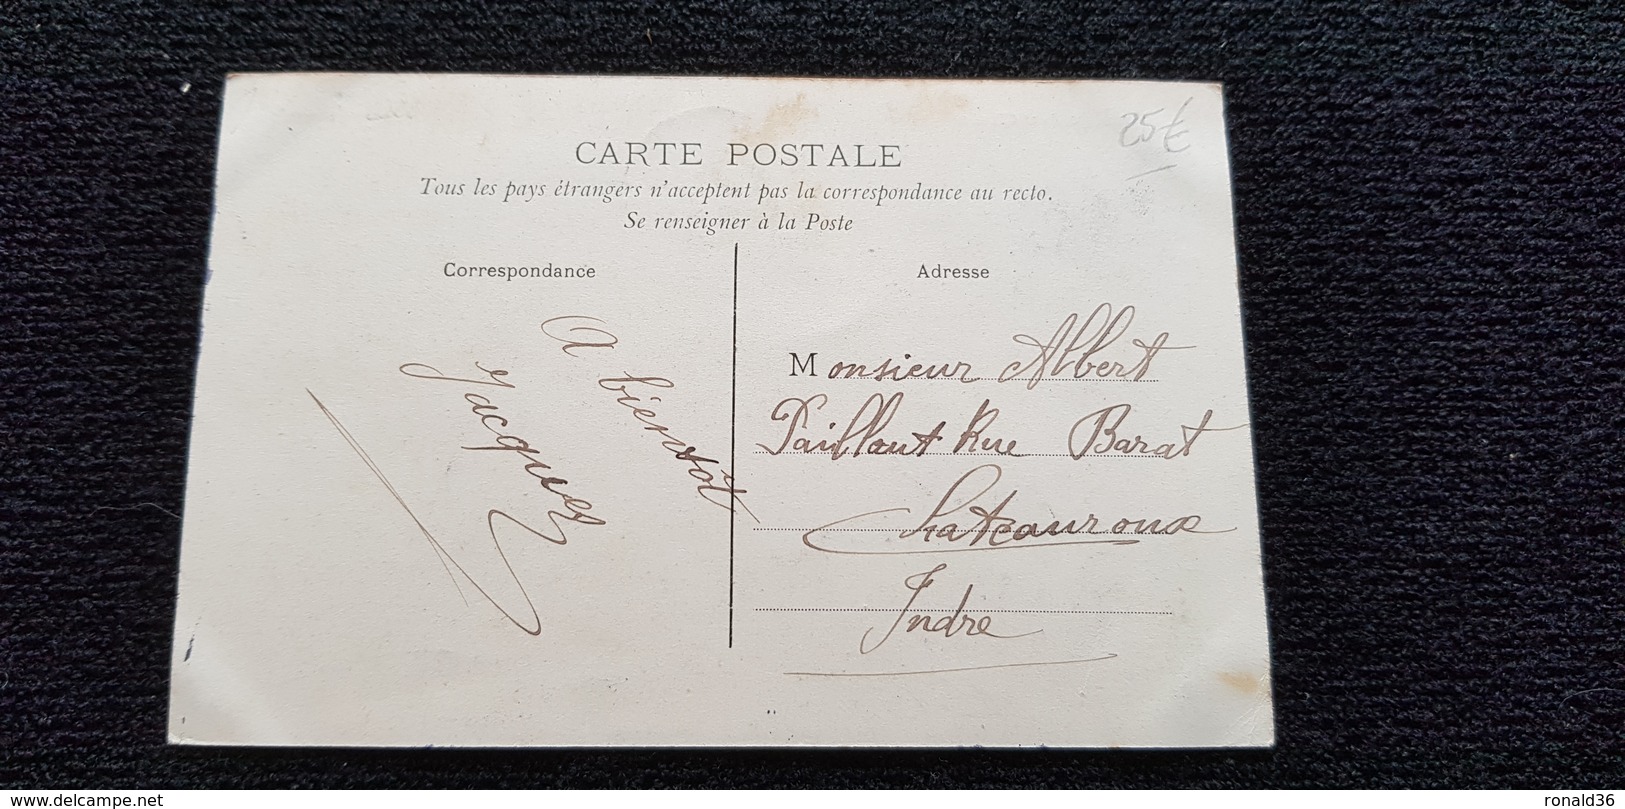 25€
CARTE POSTALE
Tous les pays étrangers n'acceptent pas la correspondance au recto.
Se renseigner à la Poste
Correspondance
A bientôt
Jacques
Adresse
Monsieur Albert
Paillaut Rue Barat
Chateauroux
Indre
www.delcampe.net
ronald36